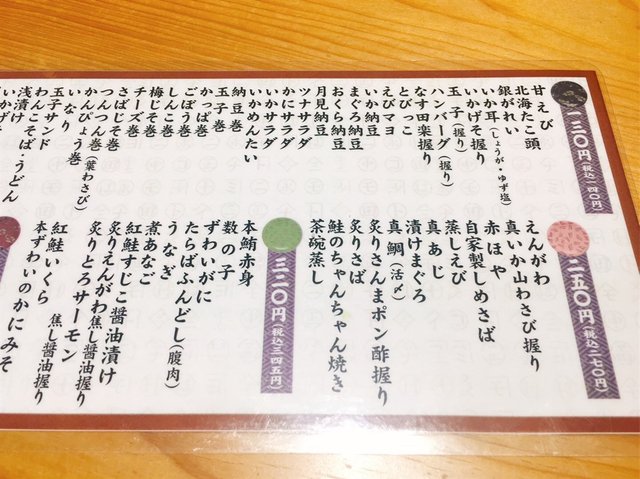 一三〇円(税込一四〇円)
甘えび
北海たこ頭
銀がれい
いか耳(しょうが・ゆず塩)
いかげそ握り
玉子(握り)
ハンバーグ(握り)
なす田楽握り
とびっこ
えびマヨ
いか納豆
まぐろ納豆
おくら納豆
月見納豆
ツナサラダ
かにサラダ
いかサラダ
いかめんたい
納豆巻
玉子巻
かっぱ巻
ごぼう巻
しんこ巻
梅じそ巻
チーズ巻
さばじそ巻
つんつん巻
かんぴょう巻(葉わさび)
いなり
玉子サンド
わんこそば・うどん
浅漬け
いかげそ
二五〇円(税込二七〇円)
えんがわ
真いか山わさび握り
赤ほや
自家製しめさば
蒸しえび
真あじ
漬けまぐろ
真鯛(活〆)
炙りさんまポン酢握り
炙りさば
鮭のちゃんちゃん焼き
茶碗蒸し
三二〇円(税込三四五円)
本鮪赤身
数の子
ずわいがに
たらばふんどし(腹肉)
うなぎ
煮あなご
紅鮭すじこ醤油漬け
炙りえんがわ焦し醤油握り
炙りとろサーモン
焦し醤油握り
紅鮭いくら
本ずわいのかにみそ